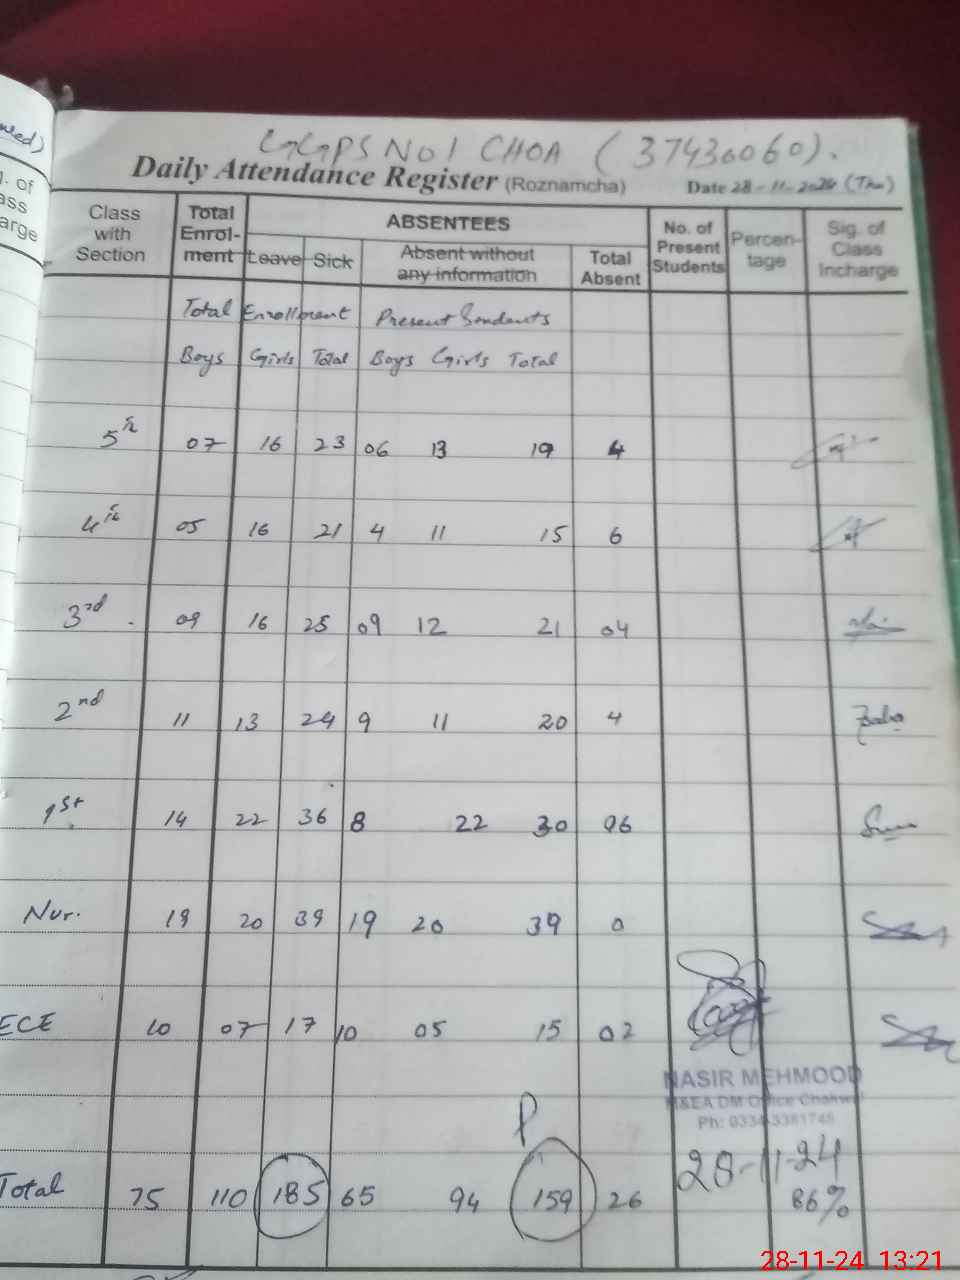 GGPS No 1 CHOA (37430060).
Daily Attendance Register (Roznamcha) Date 28-11-2024 (Thu)
Class with Section Total Enrol-ment ABSENTEES No. of Present Students Percen-tage Sig. of Class Incharge
Leave Sick Absent without any information Total Absent
Total Enrollment Present Sondants
Boys Girls Total Boys Girls Total
5th 07 16 23 06 13 19 4
4th 05 16 21 4 11 15 6
3rd 09 16 25 09 12 21 04
2nd 11 13 24 9 11 20 4
1st 14 22 36 8 22 30 06
Nur. 19 20 39 19 20 39 0
ECE 10 07 17 10 05 15 02
NASIR MEHMOOD
M&EA DM Office Chakwal
Ph: 0334-3381748
P
28-11-24
Total 75 110 185 65 94 159 26 86%
28-11-24 13:21